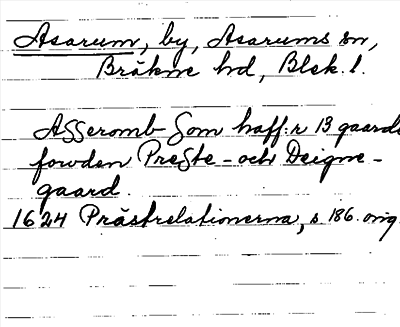 Asarum, by, Asarums sn,
Bräkne hd, Blek. l.
Asseromb som haff:r 13 gaarde
fowden Preste - och Deigne -
gaard.
1624 Prästrelationerna, s 186. orig.